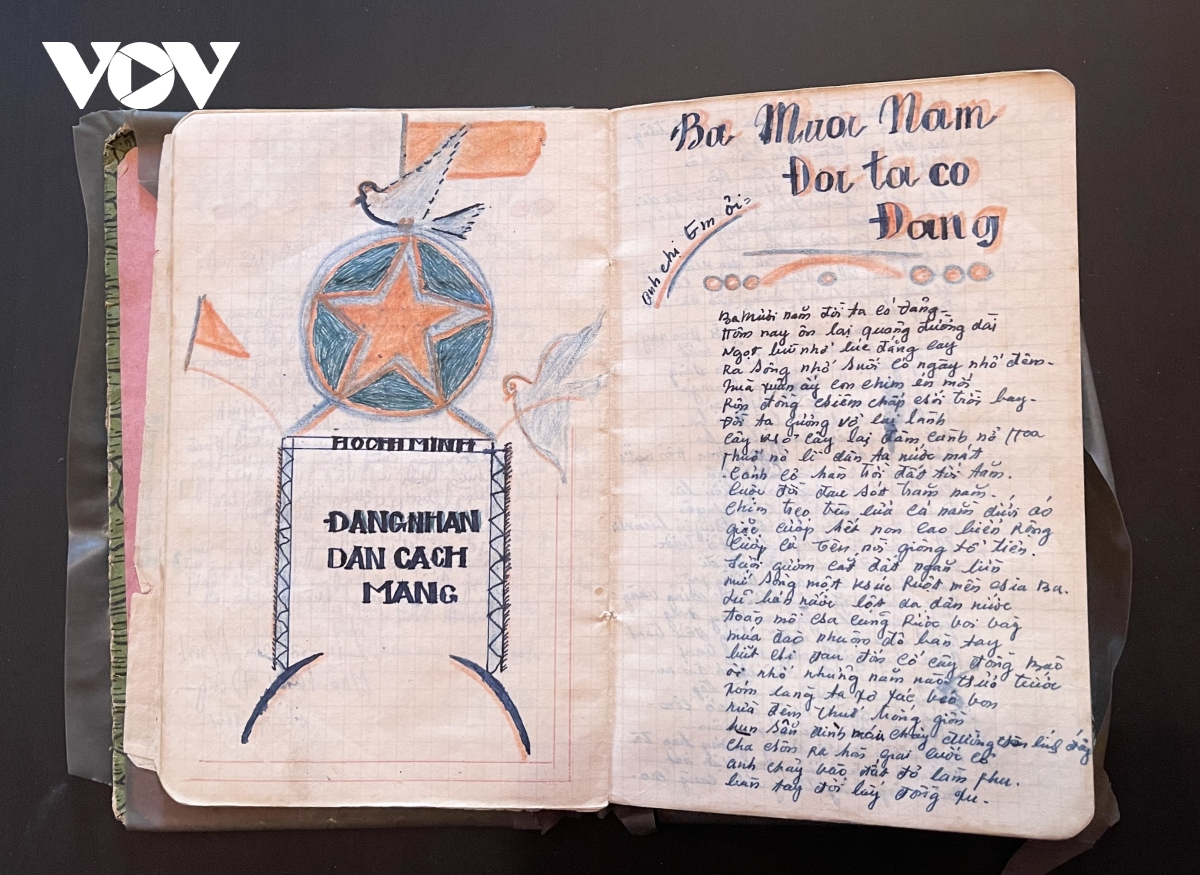 VOV
HO CHI MINH
ĐANG NHAN
DAN CACH
MANG
Ba Muoi Nam
Đoi ta co
Đang
anh chi Em ơi=
Ba mươi năm đời ta có đảng-
Hôm nay ôn lại quãng đường dài
Ngọt bùi nhớ lúc đắng cay
Ra Sông nhớ Suối có ngày nhớ đêm-
mùa xuân ấy con chim én mới
Rộn đồng chiêm chấp chới trời bay-
Đời ta gương vỡ lại lành
cây khô cây lại đâm cành nở Hoa
thuở nô lệ dân ta nước mất
cảnh cơ hàn trời đất tối tăm.
cuộc đời đau sót trăm năm-
chim treo trên lửa cá nằm dưới
giặc cướp hết non cao biển Rộng
cướp cả tên nòi giống tổ tiên.
lưỡi gươm cắt đất ngăn
núi Sông một khúc Ruột mền chia Ba.
lột da dân nước
toàn mồ cha cũng Rước voi
múa đao nhuộm đỏ bàn tay
bút chì đau đớn
ôi nhớ những năm nào thuở trước
xóm làng ta xơ xác
nửa đêm thuế trống
Sân đình máu chảy đường
cha chốn ra hòn gai cuốc
anh chạy vào đất đỏ làm phu.
bán tay đổi lấy đồng xu-